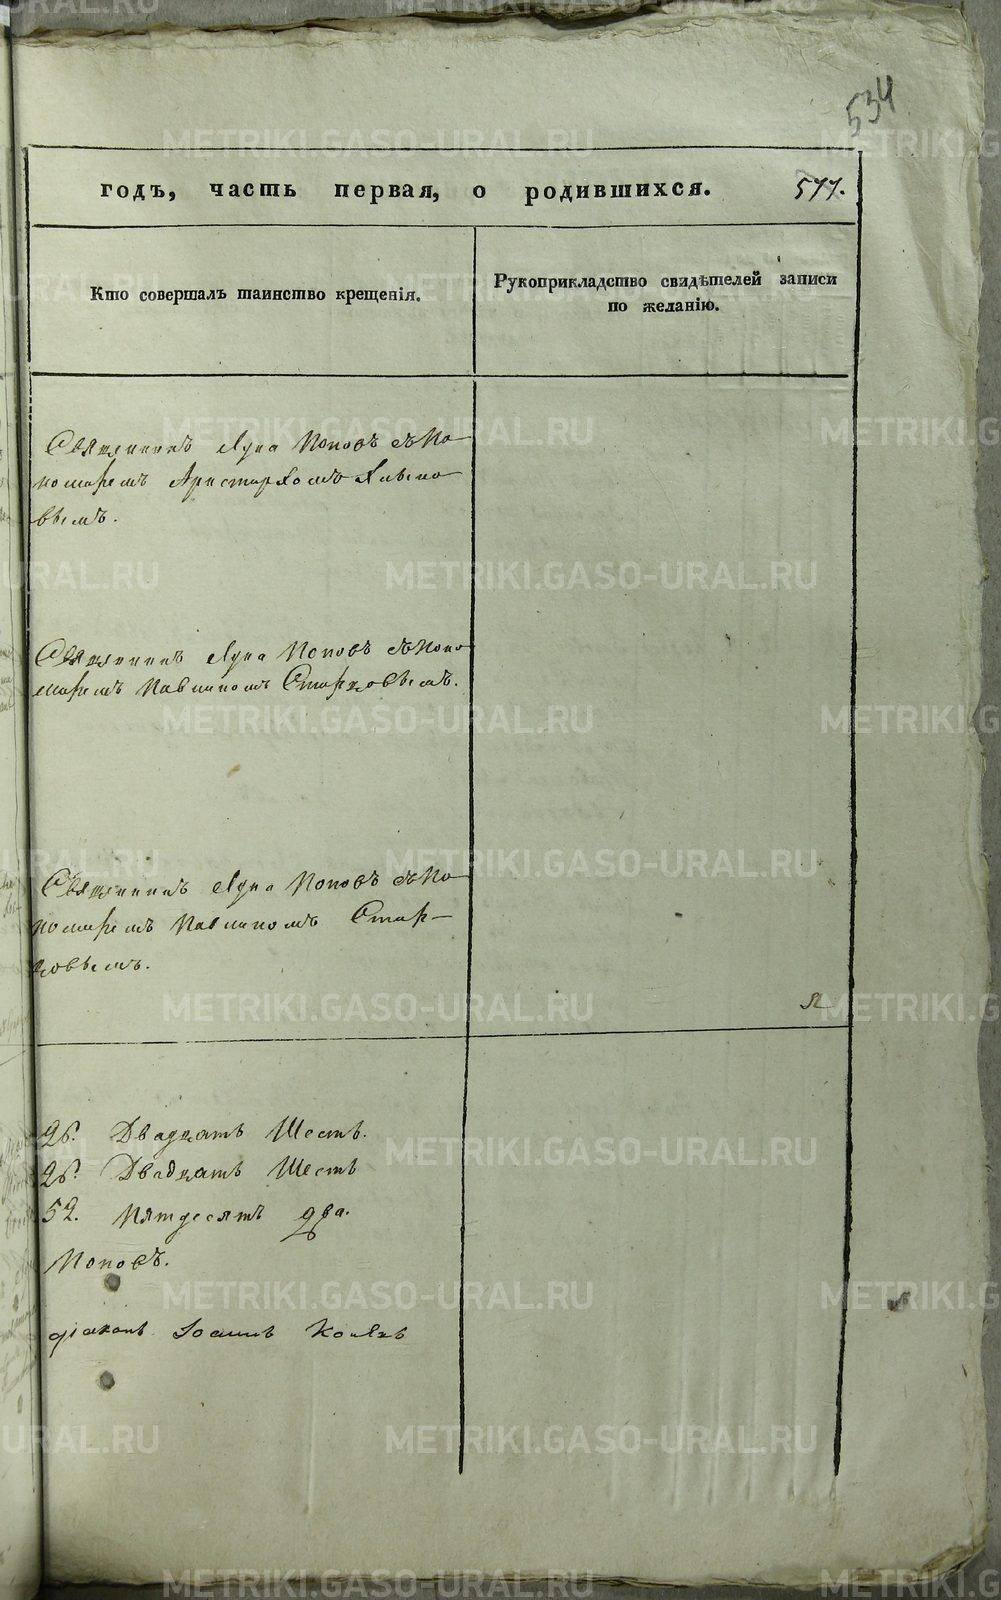 534
годъ, часть первая, о родившихся. 577.
Кто совершалъ таинство крещенія.
Рукоприкладство свидѣтелей записи
по желанію.
Священникъ Лука Поповъ съ По-
номаремъ Аристархомъ
вымъ.
Священникъ Лука Поповъ съ Поно
маремъ Павлиномъ Старцовымъ.
Священникъ Лука Поповъ съ По-
номаремъ Павлиномъ Стар-
цовымъ.
26. Двадцать Шесть.
26. Двадцать Шесть
52. Пятдесятъ два.
Поповъ.
діаконъ Іоаннъ
METRIKI.GASO-URAL.RU